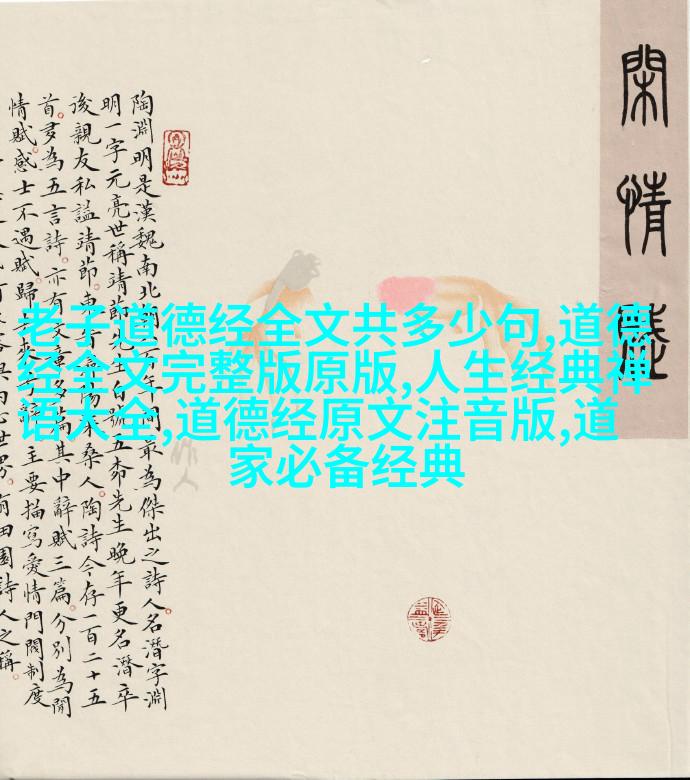 閑情賦
陶淵明是漢魏南北朝百年間最為傑出之詩人名潛字淵
明一字元亮世稱靖節先生自號五柳先生晚年更名潛卒
後親友私謚靖節東晉潯陽柴桑人陶詩今存一百二十五
首多為五言詩亦有文章多篇其中辭賦三篇分別為閒
情賦感士不遇賦歸去來兮辭主要描寫愛情門閥制度
田園詩人之稱
老子道德经全文共多少句,道德
经全文完整版原版,人生经典禅
语大全,道德经原文注音版,道
家必备经典